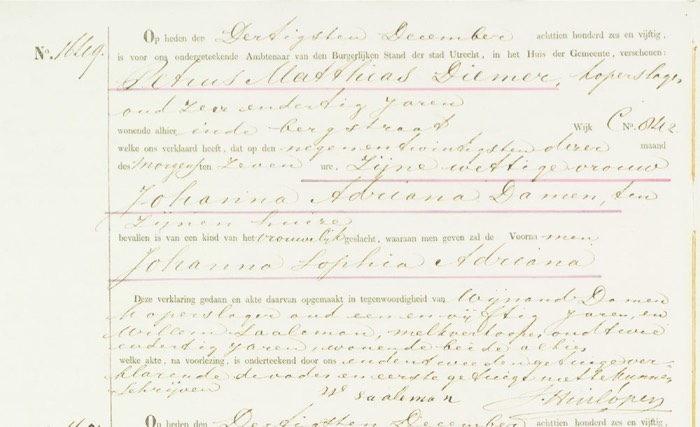 Op heden den Dertigsten December achttien honderd zes en vijftig,
N°. 1649. is voor ons ondergeteekende Ambtenaar van den Burgerlijken Stand der stad Utrecht, in het Huis der Gemeente, verschenen:
Petrus Matthias Diemer, koperslager
oud zes en dertig jaren
wonende alhier in de bergstraat Wijk C N°. 842
welke ons verklaard heeft, dat op den negenentwintigsten dezer maand
des morgens ten zeven ure. Zijne wettige vrouw
Johanna Adriana Damen, ten
zijnen huize
bevallen is van een kind van het vrouwelijk geslacht, waaraan men geven zal de Voornamen
Johanna Sophia Adriana
Deze verklaring gedaan en akte daarvan opgemaakt in tegenwoordigheid van Wijnand Damen
koperslager oud een en vijftig jaren, en
Willem Saaleman, melkverkooper oud twee
endertig jaren, wonende beide alhier
welke akte, na voorlezing, is onderteekend door ons en den tweeden getuige ver-
klarende de vader en eerste getuige niet te kunnen
schrijven W Saaleman
Op heden den Dertigsten December achttien honderd zes en vijftig,